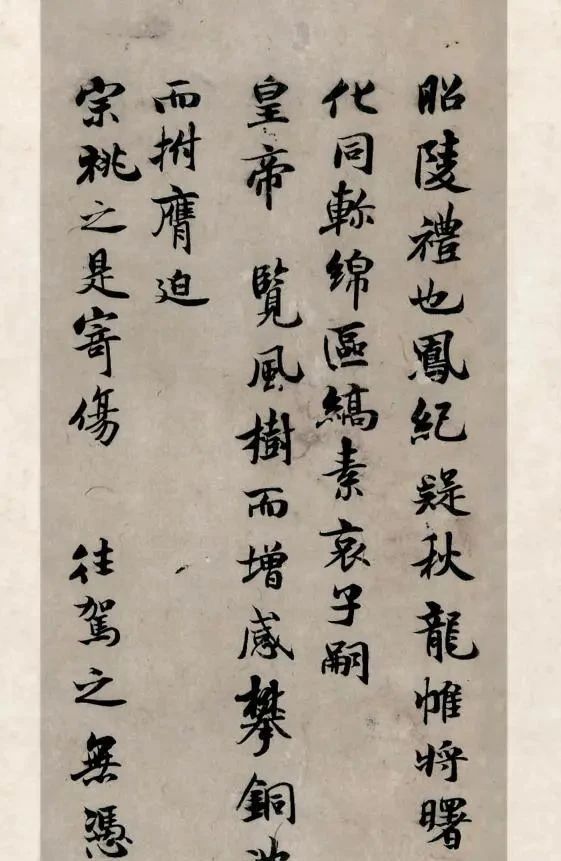 昭陵禮也鳳紀疑秋龍帷將曙
化同軫綿區縞素哀子嗣
皇帝 覽風樹而增感攀銅
而拊膺迫
宗祧之是寄傷 往駕之無憑